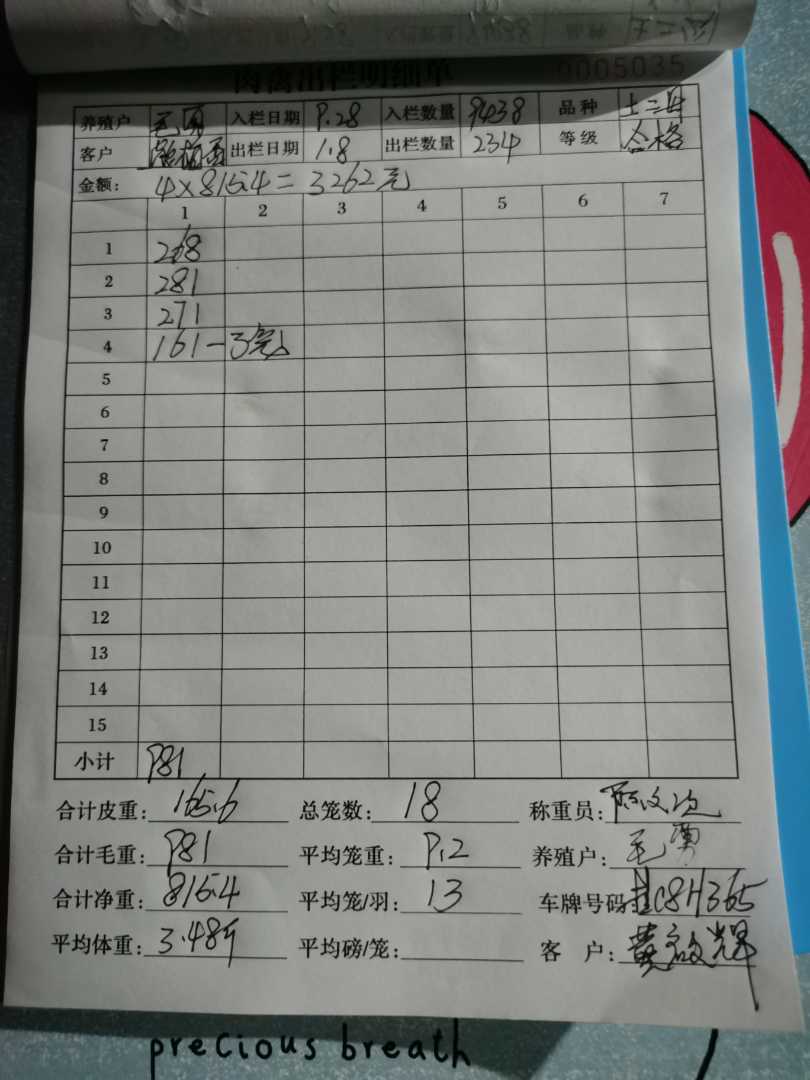 肉禽出栏明细单 0005035
养殖户 毛勇 入栏日期 9.28 入栏数量 9438 品种 土二
客户 出栏日期 1.8 出栏数量 234 等级 合格
金额: 4×815.4=3262元
1 2 3 4 5 6 7
1 268
2 281
3 271
4 161-3
5
6
7
8
9
10
11
12
13
14
15
小计 981
合计皮重: 165.6 总笼数: 18 称重员:
合计毛重: 981 平均笼重: 9.2 养殖户: 毛勇
合计净重: 815.4 平均笼/羽: 13 车牌号码: 桂C8H365
平均体重: 3.48斤 平均磅/笼: 客 户: 黄启辉
precious breath